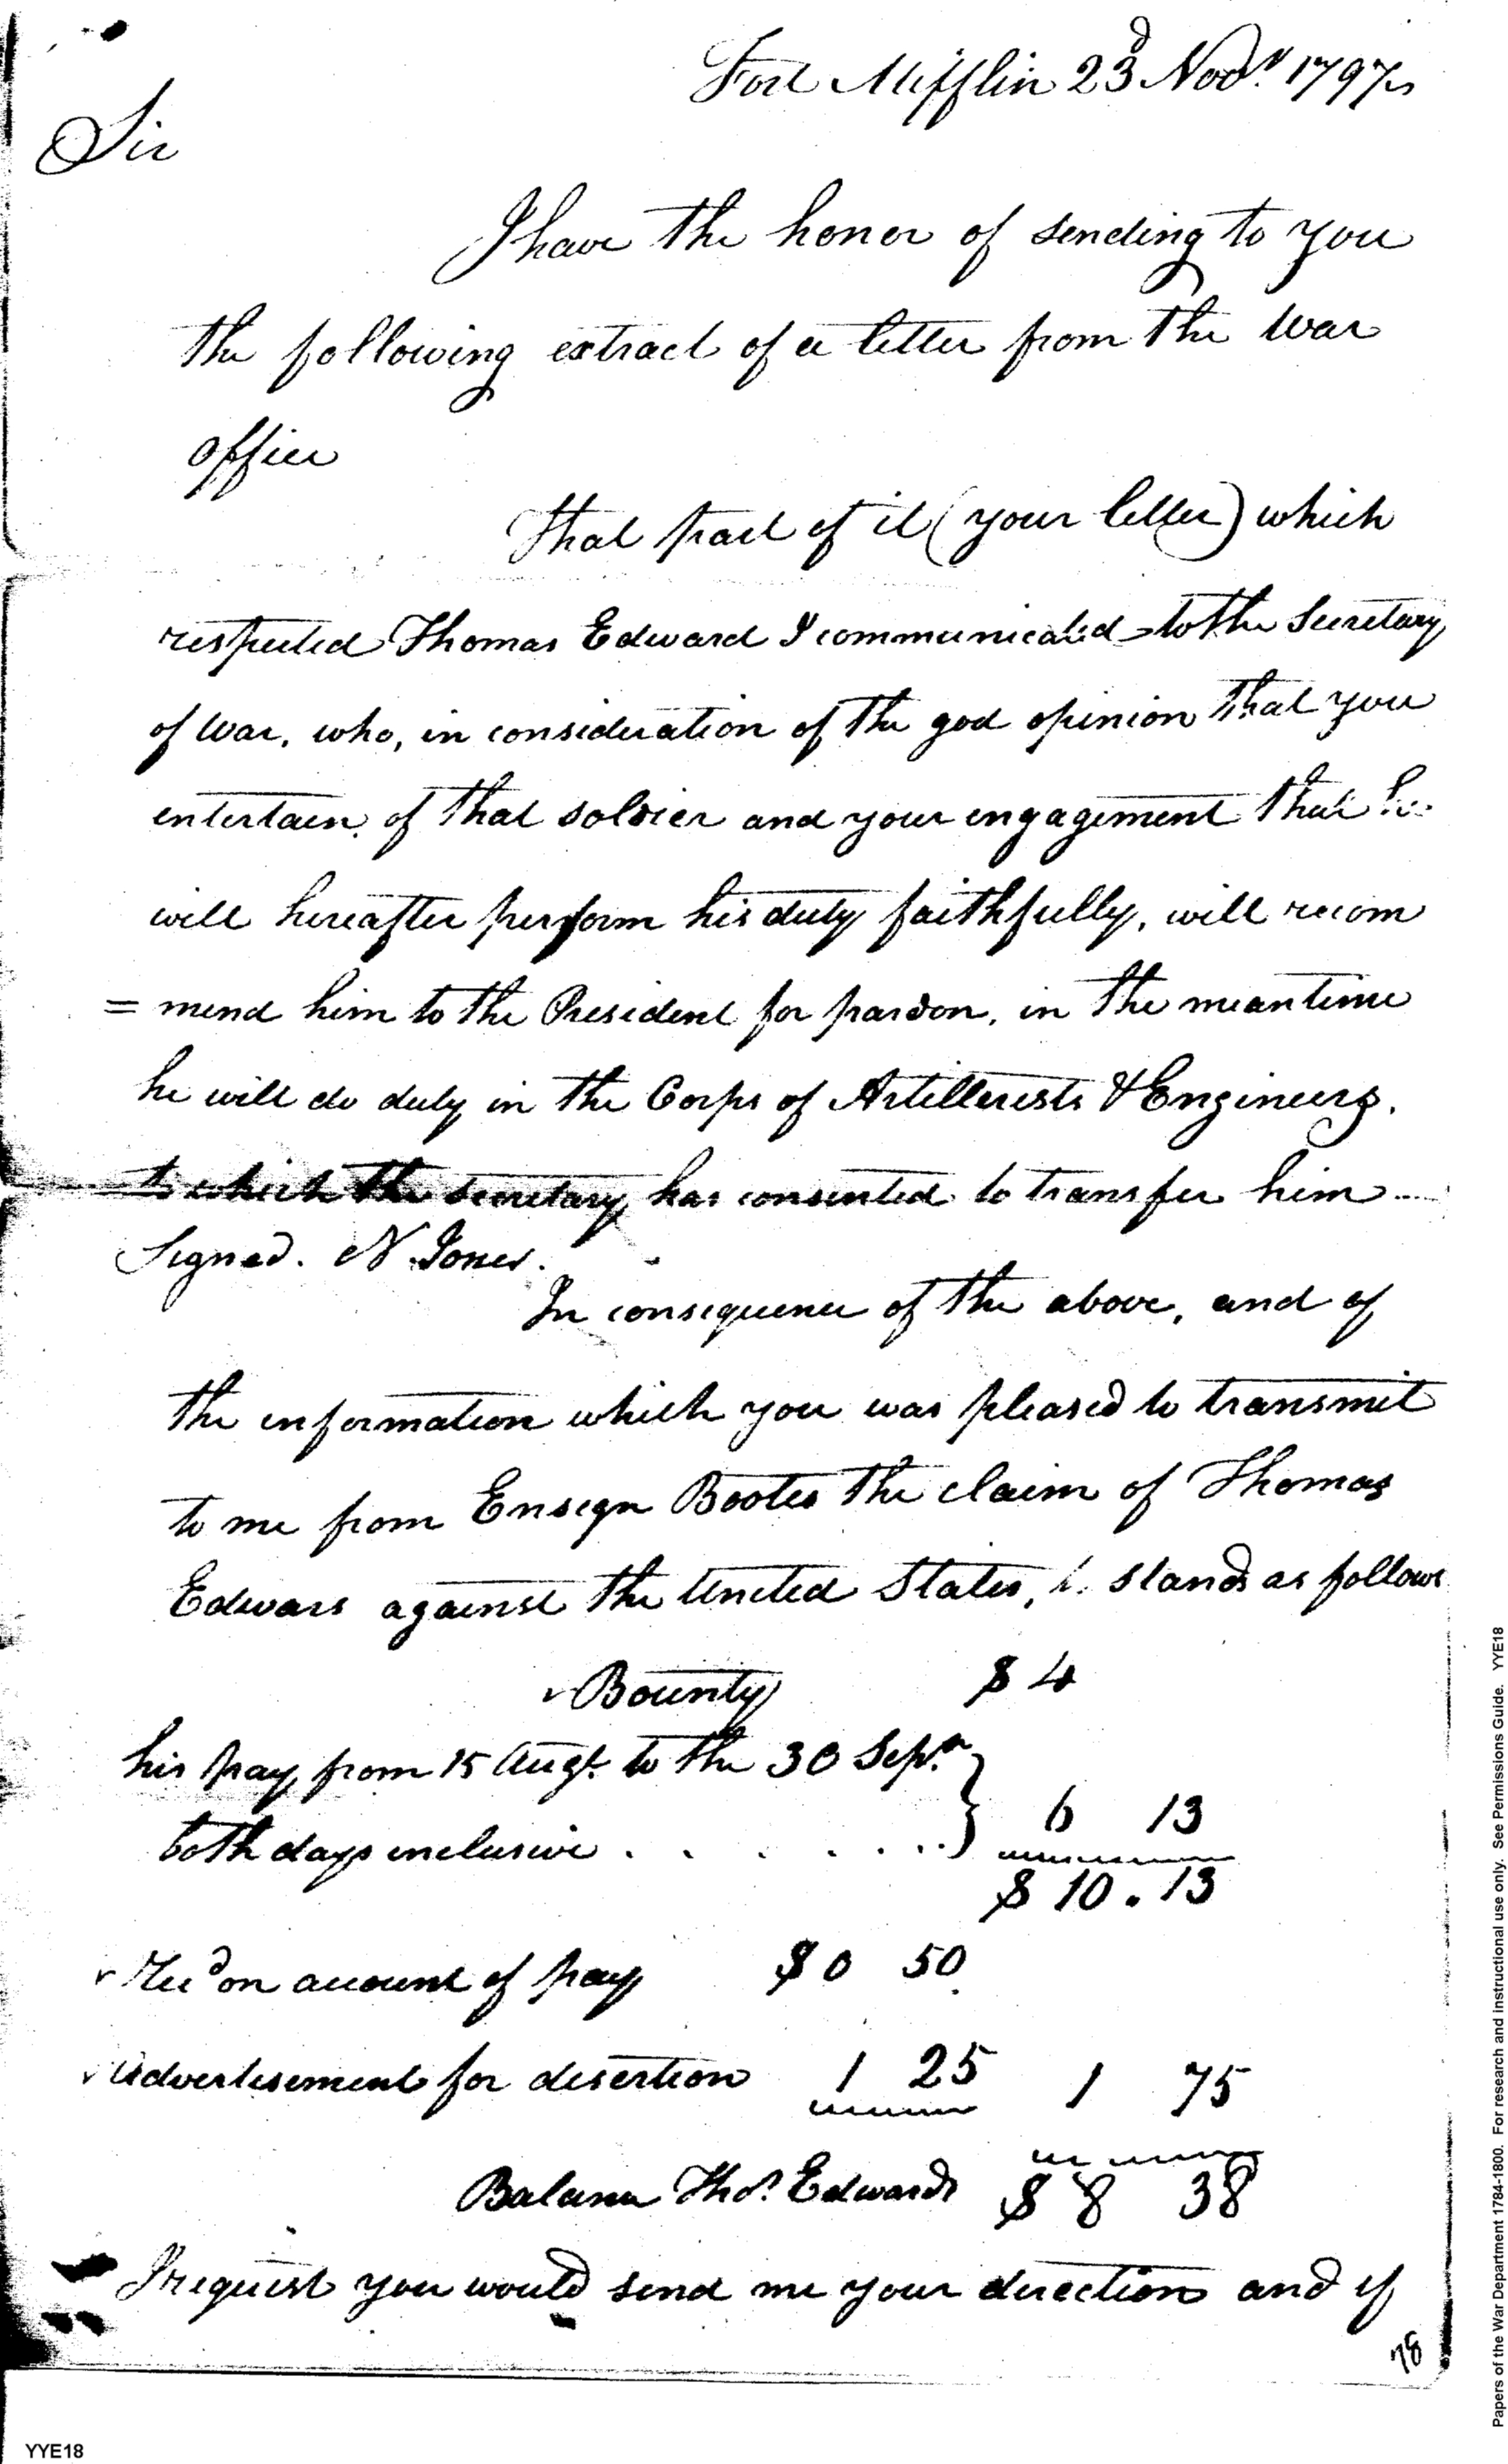 Fort Mifflin 23d Novr. 1797
Sir
I have the honor of sending to you
the following extract of a letter from the War
office
That part of it (your letter) which
respected Thomas Edward I communicated to the Secretary
of War, who, in consideration of the god opinion that you
entertain of that soldier and your engagement that he
will hereafter perform his duty faithfully, will recom
= mend him to the President for pardon, in the meantime
he will do duty in the Corps of Artillerists & Engineers.
to which the secretary has consented to transfer him
Signed. N. Jones.
In consequence of the above, and of
the information which you was pleased to transmit
to me from Ensign Bootes the claim of Thomas
Edwars against the United States, stands as follows
Bounty $ 4
his pay from 15 Augt. to the 30 Sepr.
both days inclusive . . . . . . } 6 13
$ 10.13
Recd on account of pay $0 50
Advertisement for desertion 1 25 1 75
Balance Thos. Edwards $ 8 38
I request you would send me your direction and if
78
YYE18
Papers of the War Department 1784-1800. For research and instructional use only. See Permissions Guide. YYE18